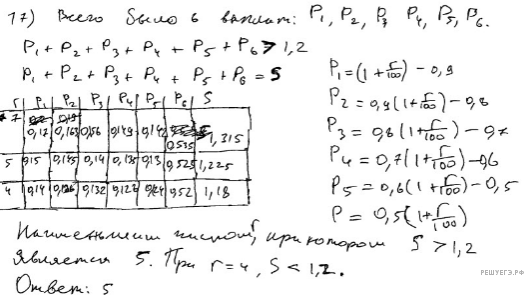 17) Всего было 6 выплат: P₁, P₂, P₃ P₄, P₅, P₆.
P₁ + P₂ + P₃ + P₄ + P₅ + P₆ > 1,2
P₁ + P₂ + P₃ + P₄ + P₅ + P₆ = S
r P₁ P₂ P₃ P₄ P₅ P₆ S
7 0,17 0,163 0,56 0,149 0,142 0,535 1,315
5 0,15 0,145 0,14 0,135 0,13 0,525 1,225
4 0,14 0,136 0,132 0,128 0,124 0,52 1,18
P₁ = (1 + r/100) − 0,9
P₂ = 0,9(1 + r/100) − 0,8
P₃ = 0,8(1 + r/100) − 0,7
P₄ = 0,7(1 + r/100) − 0,6
P₅ = 0,6(1 + r/100) − 0,5
P = 0,5(1 + r/100)
Наименьшим числом r, при котором S > 1,2
является 5. При r = 4, S < 1,2.
Ответ: 5
РЕШУЕГЭ.РФ